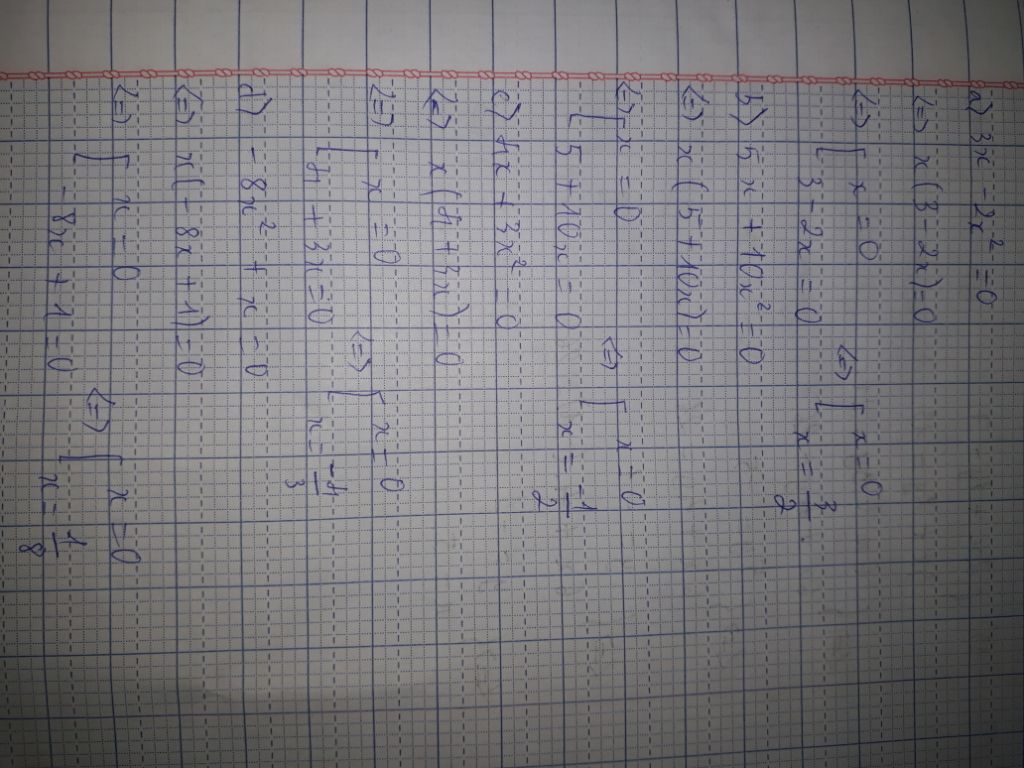 a) 3x - 2x² = 0
<=> x(3 - 2x) = 0
<=> [ x = 0
3 - 2x = 0 <=> [ x = 0
x = 3/2.
b) 5x + 10x² = 0
<=> x(5 + 10x) = 0
<=> [ x = 0
5 + 10x = 0 <=> [ x = 0
x = -1/2
c) 4x + 3x² = 0
<=> x(4 + 3x) = 0
<=> [ x = 0
4 + 3x = 0 <=> [ x = 0
x = -4/3
d) - 8x² + x = 0
<=> x(- 8x + 1) = 0
<=> [ x = 0
- 8x + 1 = 0 <=> [ x = 0
x = 1/8